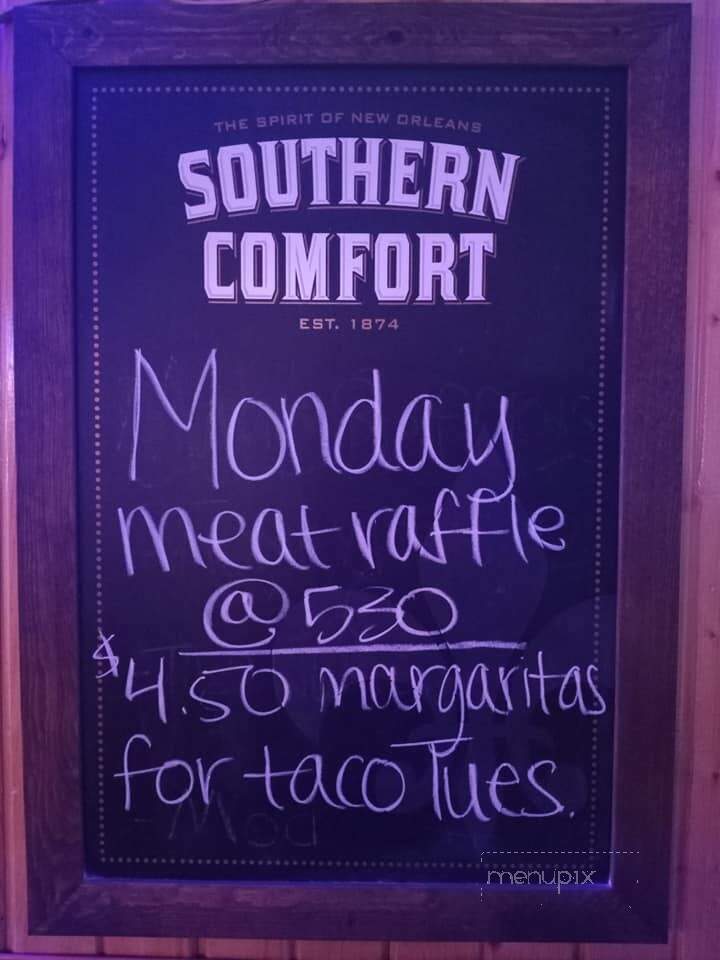 THE SPIRIT OF NEW ORLEANS
SOUTHERN
COMFORT
EST. 1874
Monday
meat raffle
@ 530
$4.50 margaritas
for taco Tues.
menupix